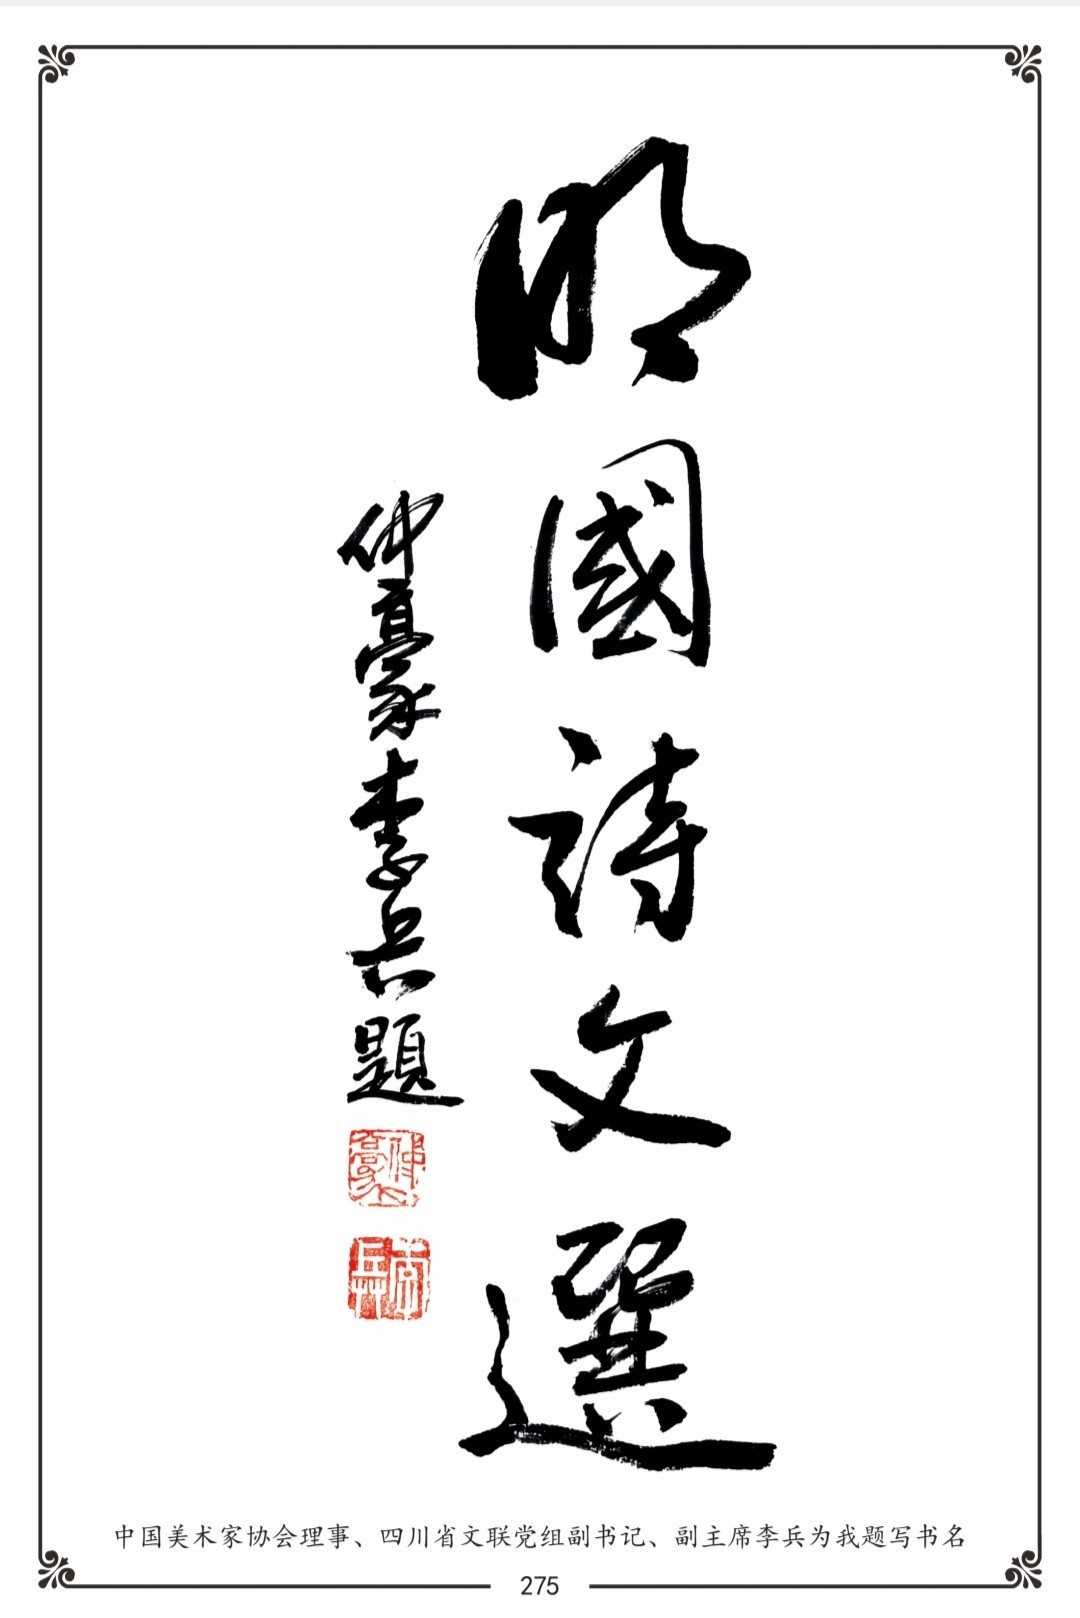 明國詩文選
仲豪李兵題
仲豪
李兵
中国美术家协会理事、四川省文联党组副书记、副主席李兵为我题写书名
275